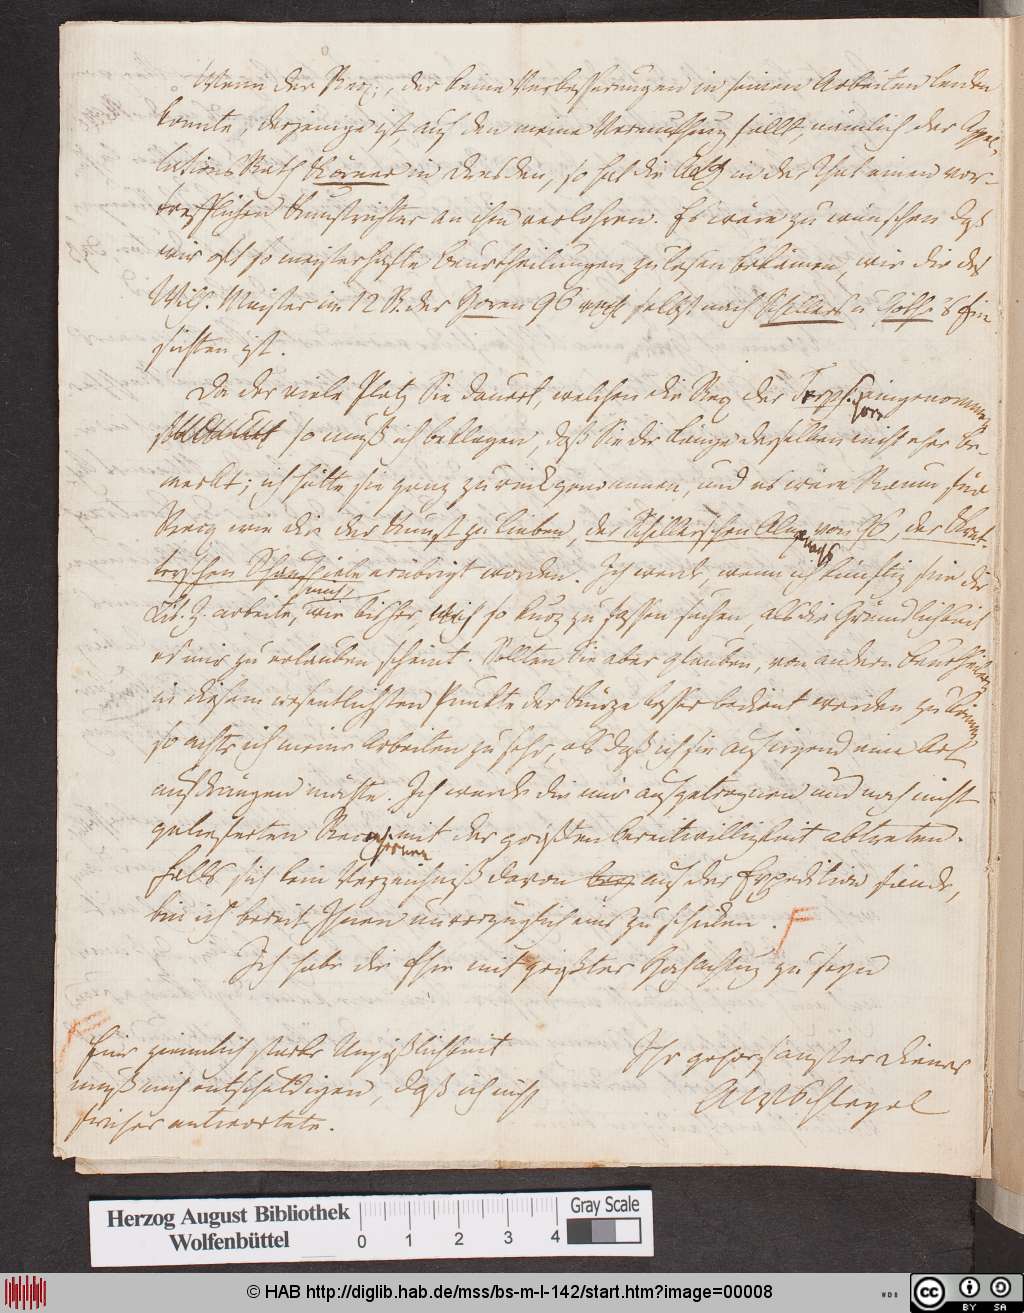 Wenn der Rec:, der keine Verbesserungen in seinen Arbeiten leiden
konnte, derjenige ist, auf den meine Vermuthung fällt, nämlich der Appel-
lations Rath Körner in Dresden, so hat die ALZ in der That einen vor-
trefflichen Kunstrichter an ihm verlohren. Es wäre zu wünschen daß
wir oft so meisterhafte Beurtheilungen zu lesen bekämen, wie die des
Wilh. Meister im 12 St. der Horen 96 selbst nach Schillers u Göthe's Ein
sichten ist.
Da der viele Platz Sie dauert, welchen die Rec der Terpsichore eingenommen
so muß ich beklagen, daß Sie die Länge derselben nicht eher be-
merkt; ich hätte sie ganz zurückgenommen, und es wäre Raum für
Recc wie die der Kunst zu lieben, des Schillerschen Almanachs von 96, der
Schauspiele erübrigt worden. Ich werde, wenn ich künftig für die
Lit. Z. arbeite, mich wie bisher so kurz zu fassen suchen, als die Gründlichkeit
es mir zu erlauben scheint. Sollten Sie aber glauben, von andern Beurtheilern
in diesem wesentlichsten Punkte der Kürze besser bedient werden zu können
so achte ich meine Arbeiten zu sehr, als daß ich sie auf irgend eine Art
aufdrängen möchte. Ich werde die mir aufgetragnen und noch nicht
gelieferten Recensionen mit der größten Bereitwilligkeit abtreten.
Falls sich kein Verzeichniß davon auf der Expedition fände,
bin ich bereit Ihnen unverzüglich eins zu schicken.
Ich habe die Ehre mit größter Hochachtung zu seyn
Eine ziemlich starke Unpäßlichkeit
muß mich entschuldigen, daß ich nicht
früher antwortete.
Ihr gehorsamster Diener
AWSchlegel
Herzog August Bibliothek
Wolfenbüttel
0 1 2 3 4
Gray Scale
© HAB http://diglib.hab.de/mss/bs-m-l-142/start.htm?image=00008
WDB
cc BY SA